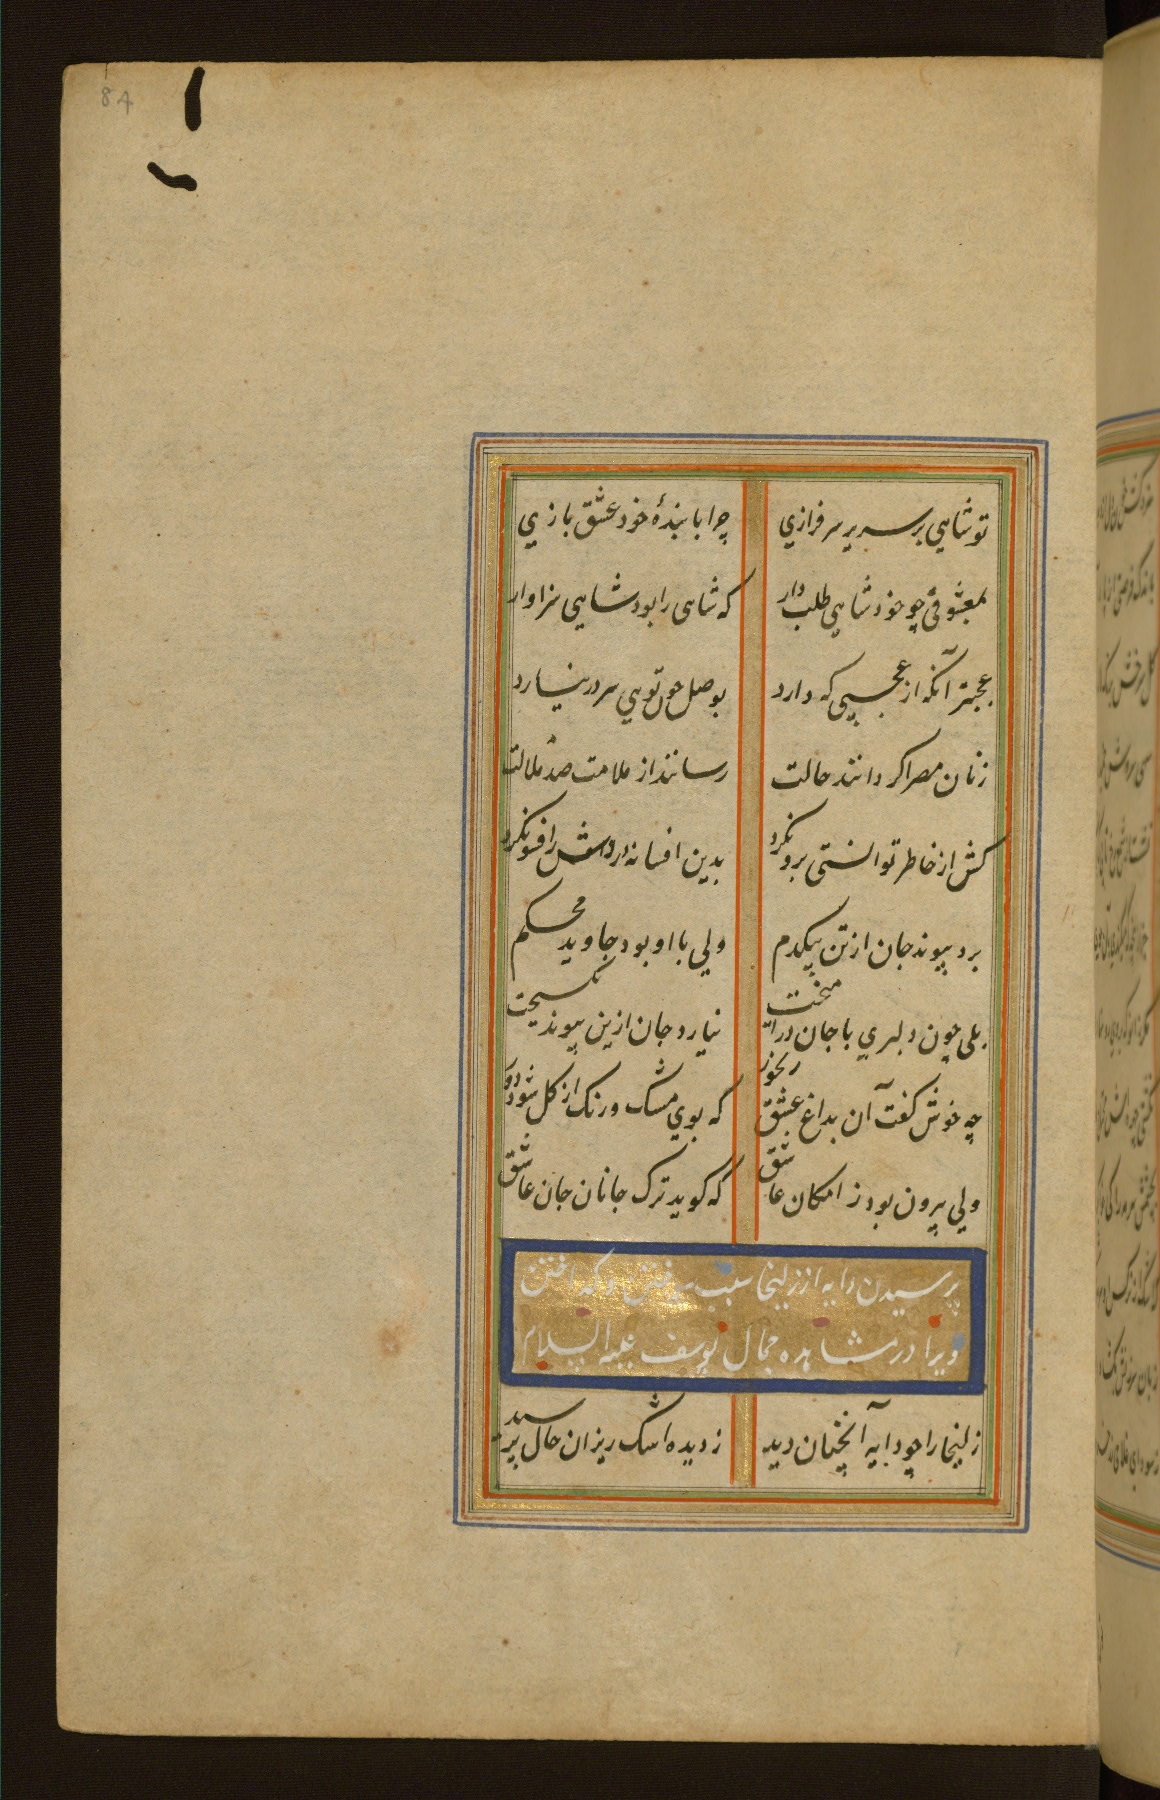 84
تو شاهي بر سرير سرفرازي چرا با بندهٔ خود عشق بازي
بمعشوقی چو خود شاهي طلب دار که شاهی را بود شاهي سزاوار
عجبتر آنکه از عجبی که دارد بوصل چون تويي سر در نیارد
زنان مصر اکر دانند حالت رسانند از ملامت صد ملالت
کش از خاطر توانستی برون کرد بدین افسانه افسون کرد
برد پیوند جان از تن بیکدم ولي با او بود جاوید محکم
بلی چون دلبري با جان درآمیخت نیارد جان ازین پیوند بکسیخت
چه خوش کفت آن بداغ عشق رنجور که بوي مشک و رنک از کل شود دور
ولي بیرون بود ز امکان عاشق که کوید ترک جانان جان عاشق
پرسیدن دایه از زلیخا سبب و کداختن
ویرا در مشاهده جمال یوسف علیه السلام
زلیخا را چو دایه آنچنان دید ز دیده اشک ریزان حال پرسید